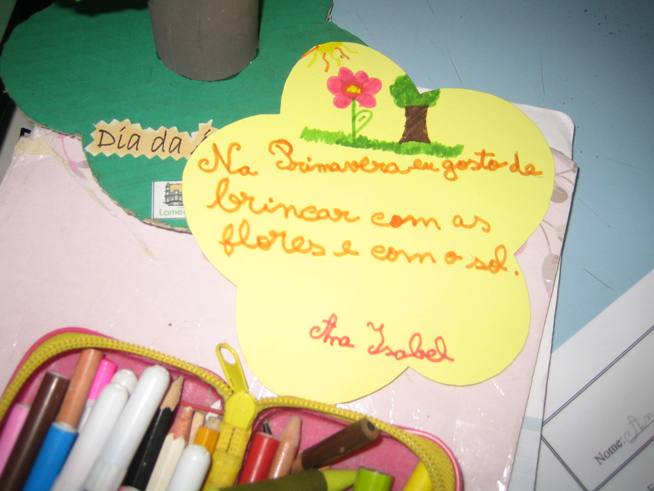 Dia da
Lame
Na Primavera eu gosto de
brincar com as
flores e com o sol.
Ana Isabel
Nome: